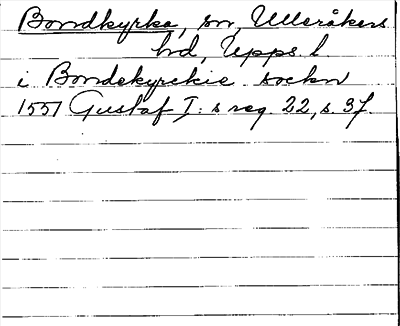 Bondkyrka, sn, Ulleråkers
hd, Upps l.
i Bondekyrckie sockn
1551 Gustaf I:s reg. 22, s. 37.